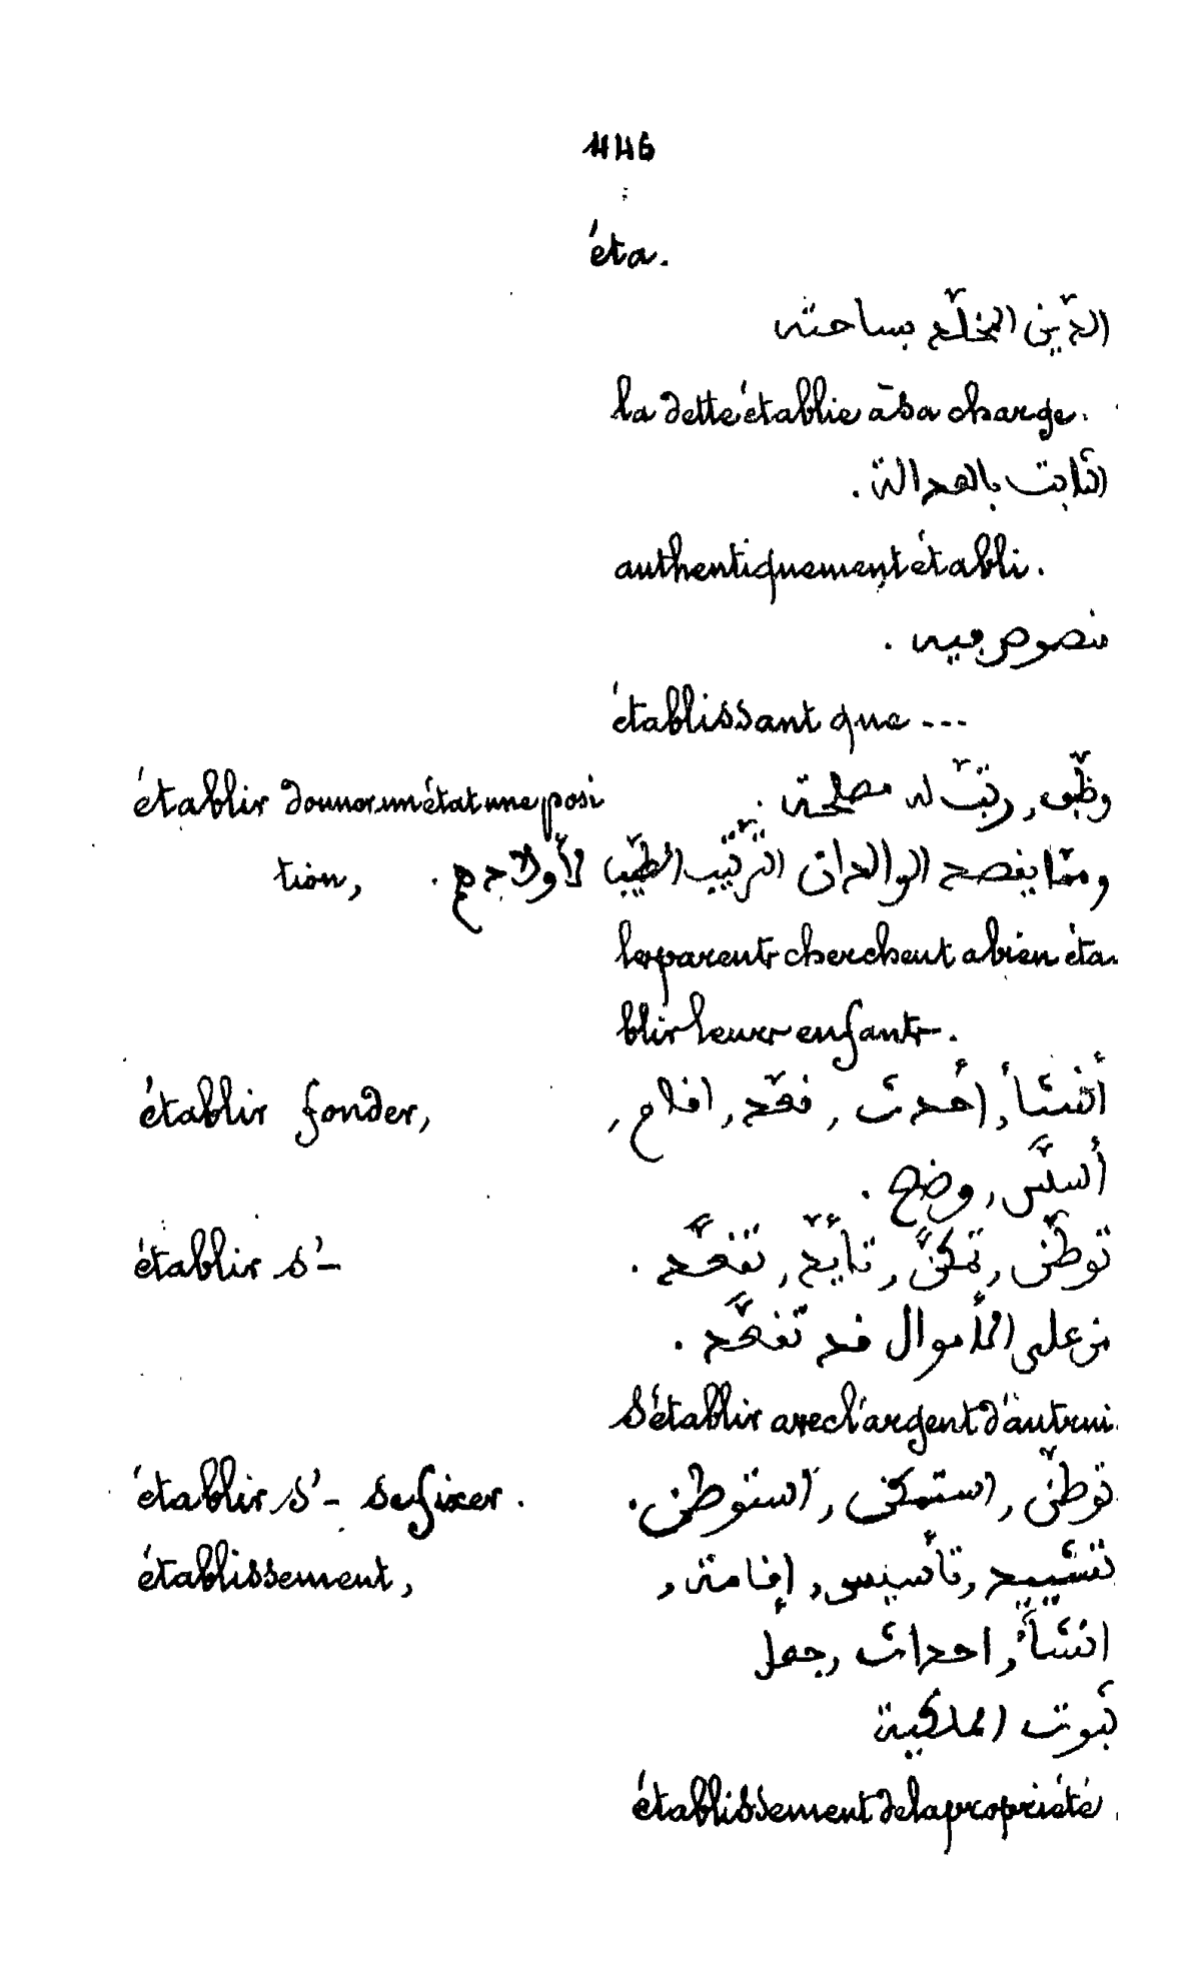 446
éta.
الدّين المخلّد بساحته
la dette établie à sa charge.
الثابت بالعدالة.
authentiquement établi.
منصوص فيه.
établissant que ---
établir donner un état une posi وظّف, رتّب له مصلحة.
tion, وممّا يقصد الوالدان الترتيب الطيّب لأولادهم.
les parents cherchent a bien éta
blir leurs enfants.
établir fonder, أنشأ, أحدث, فعّد, اقام,
أسّس, وضع.
établir s'- توطّن, تمكّن, تأيّد, تقعّد.
من على الأموال قد تقعّد.
S'établir avec l'argent d'autrui.
établir s'- se fixer. توطّن, استمكن, استوطن.
établissement, تشييد, تأسيس, إقامة,
انشاء, احداث, جعل
ثبوت الملكية
établissement de la propriété.